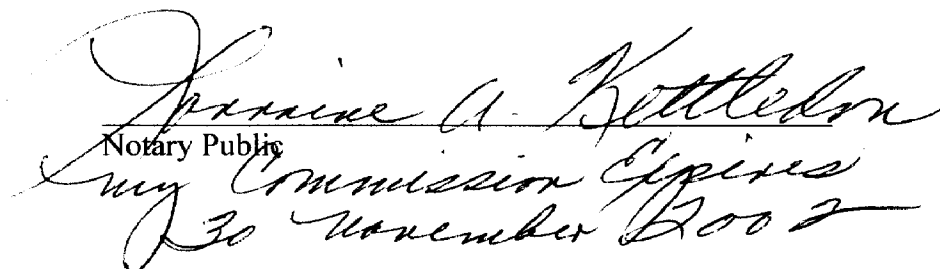 Lorraine A. Kettledon
Notary Public
my Commission Expires
30 November 2002